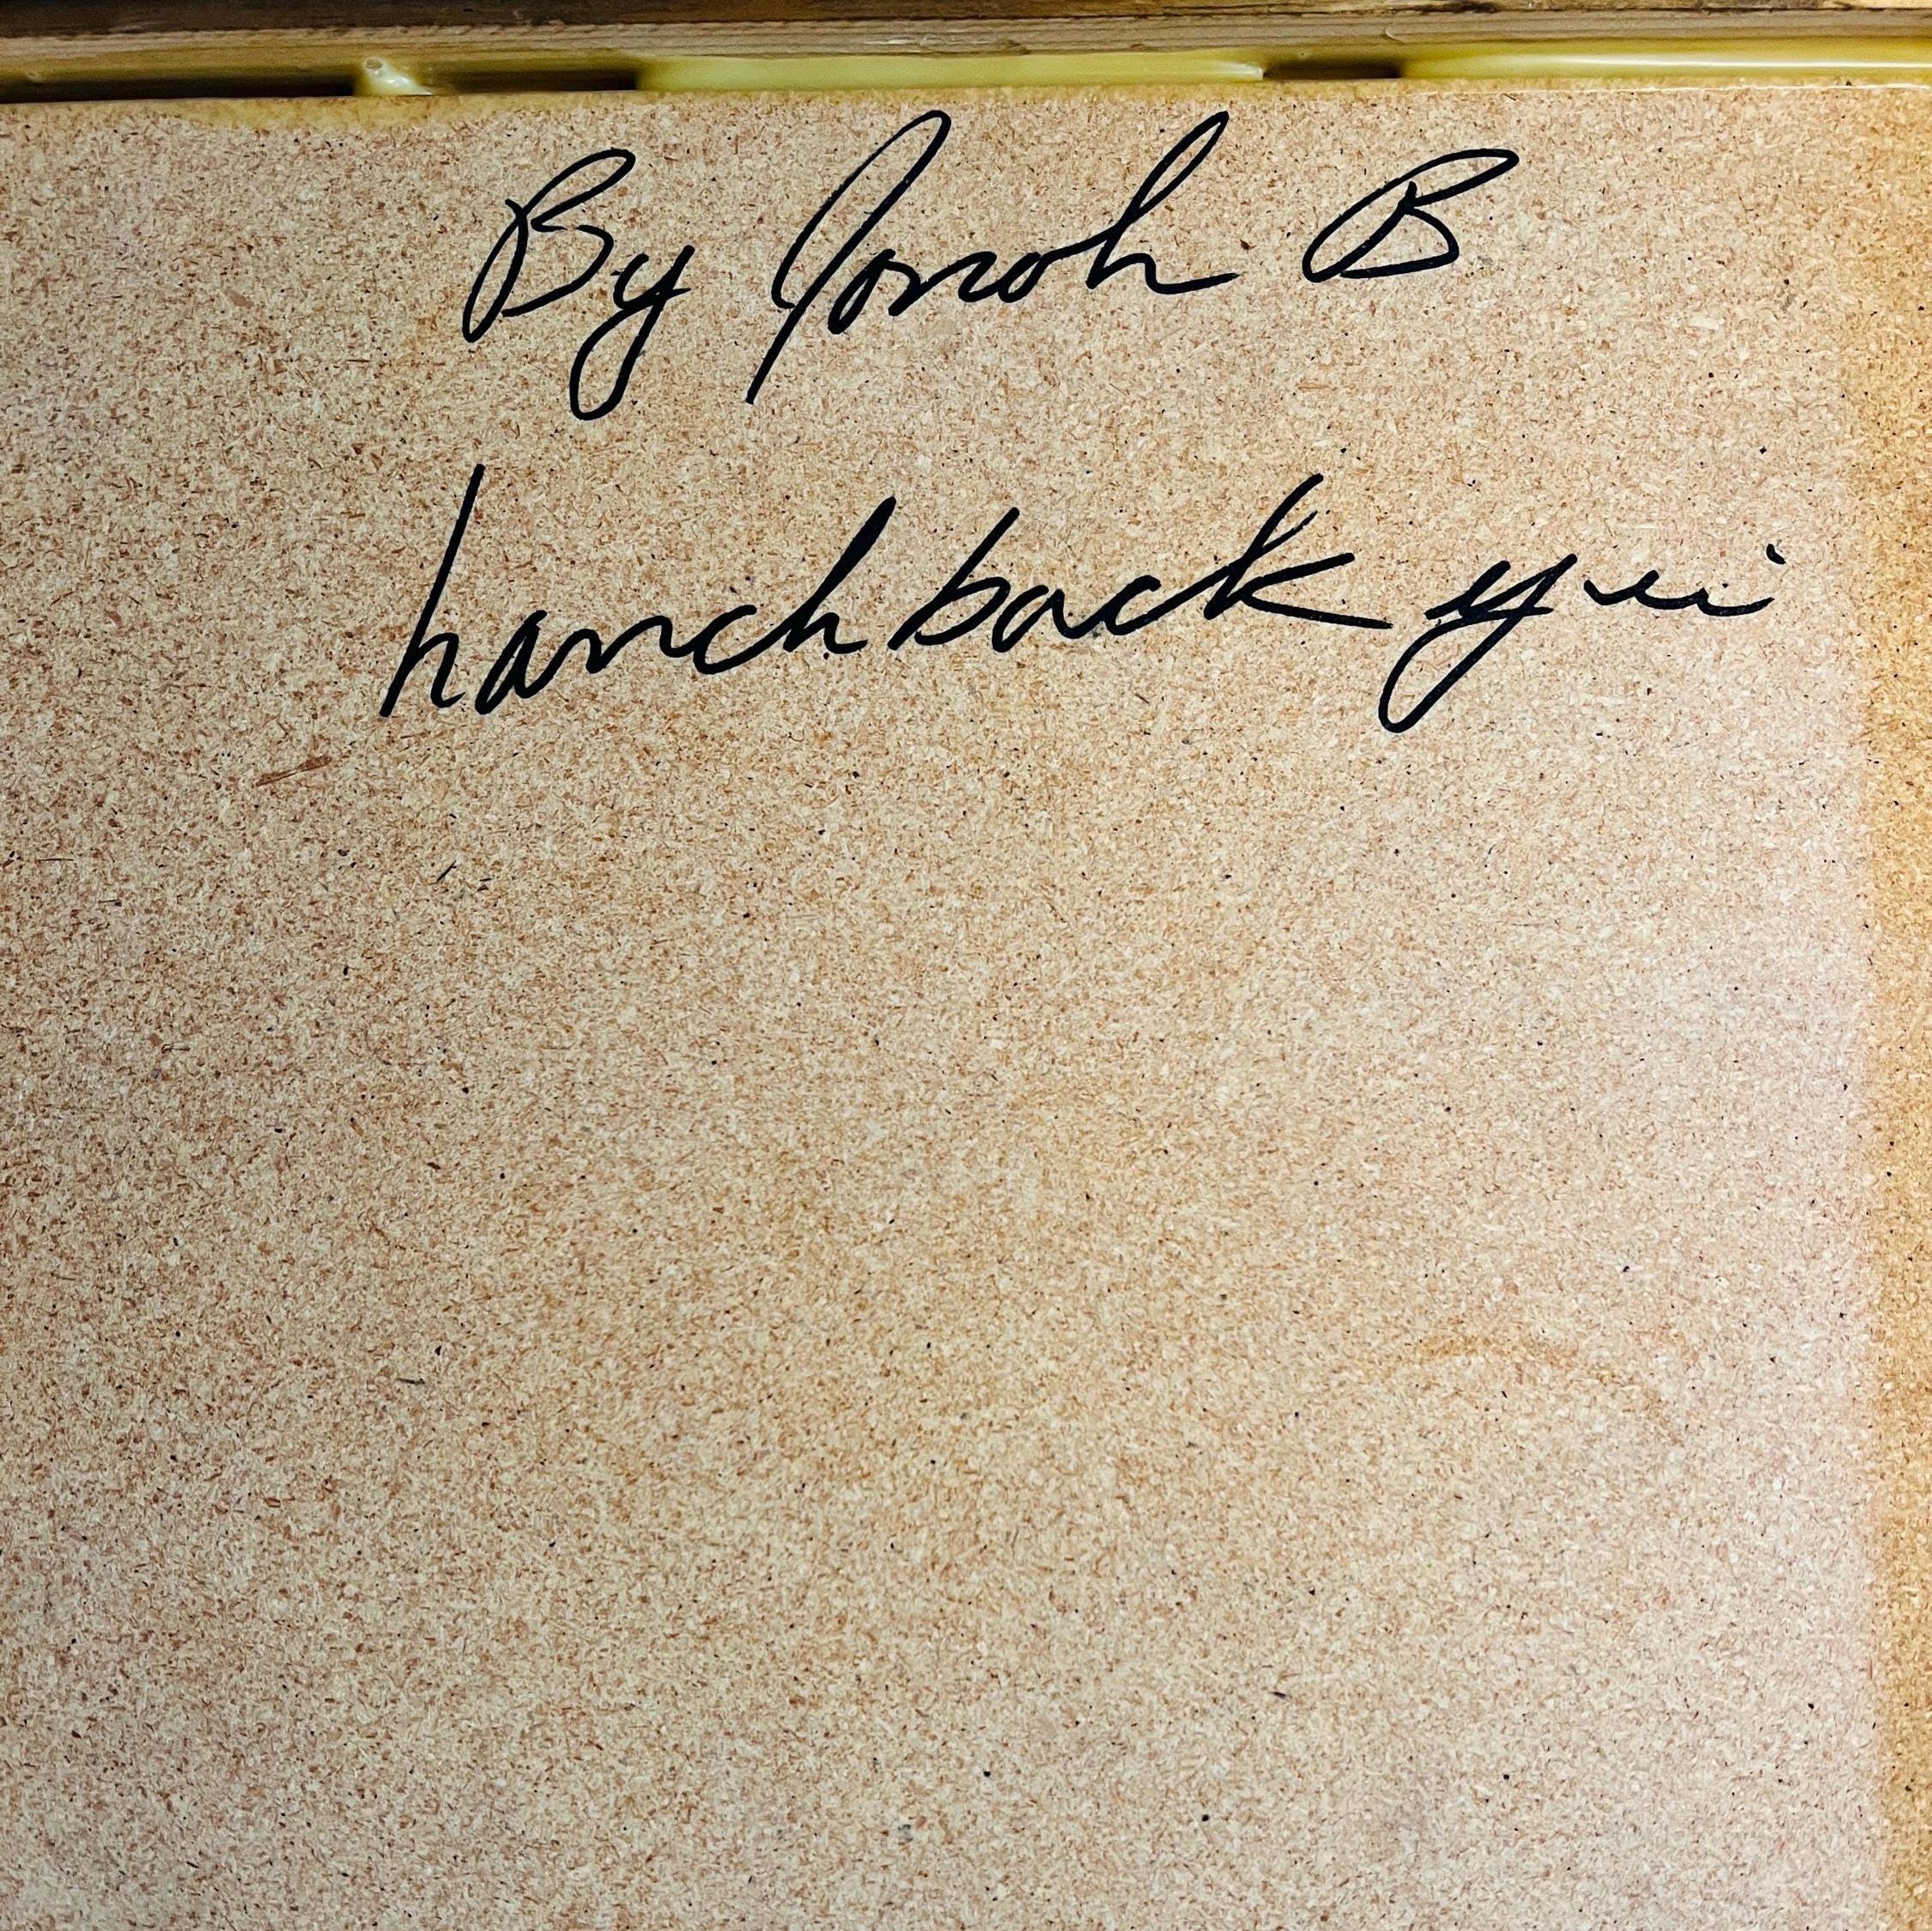 By Jonah B
hanchback yui